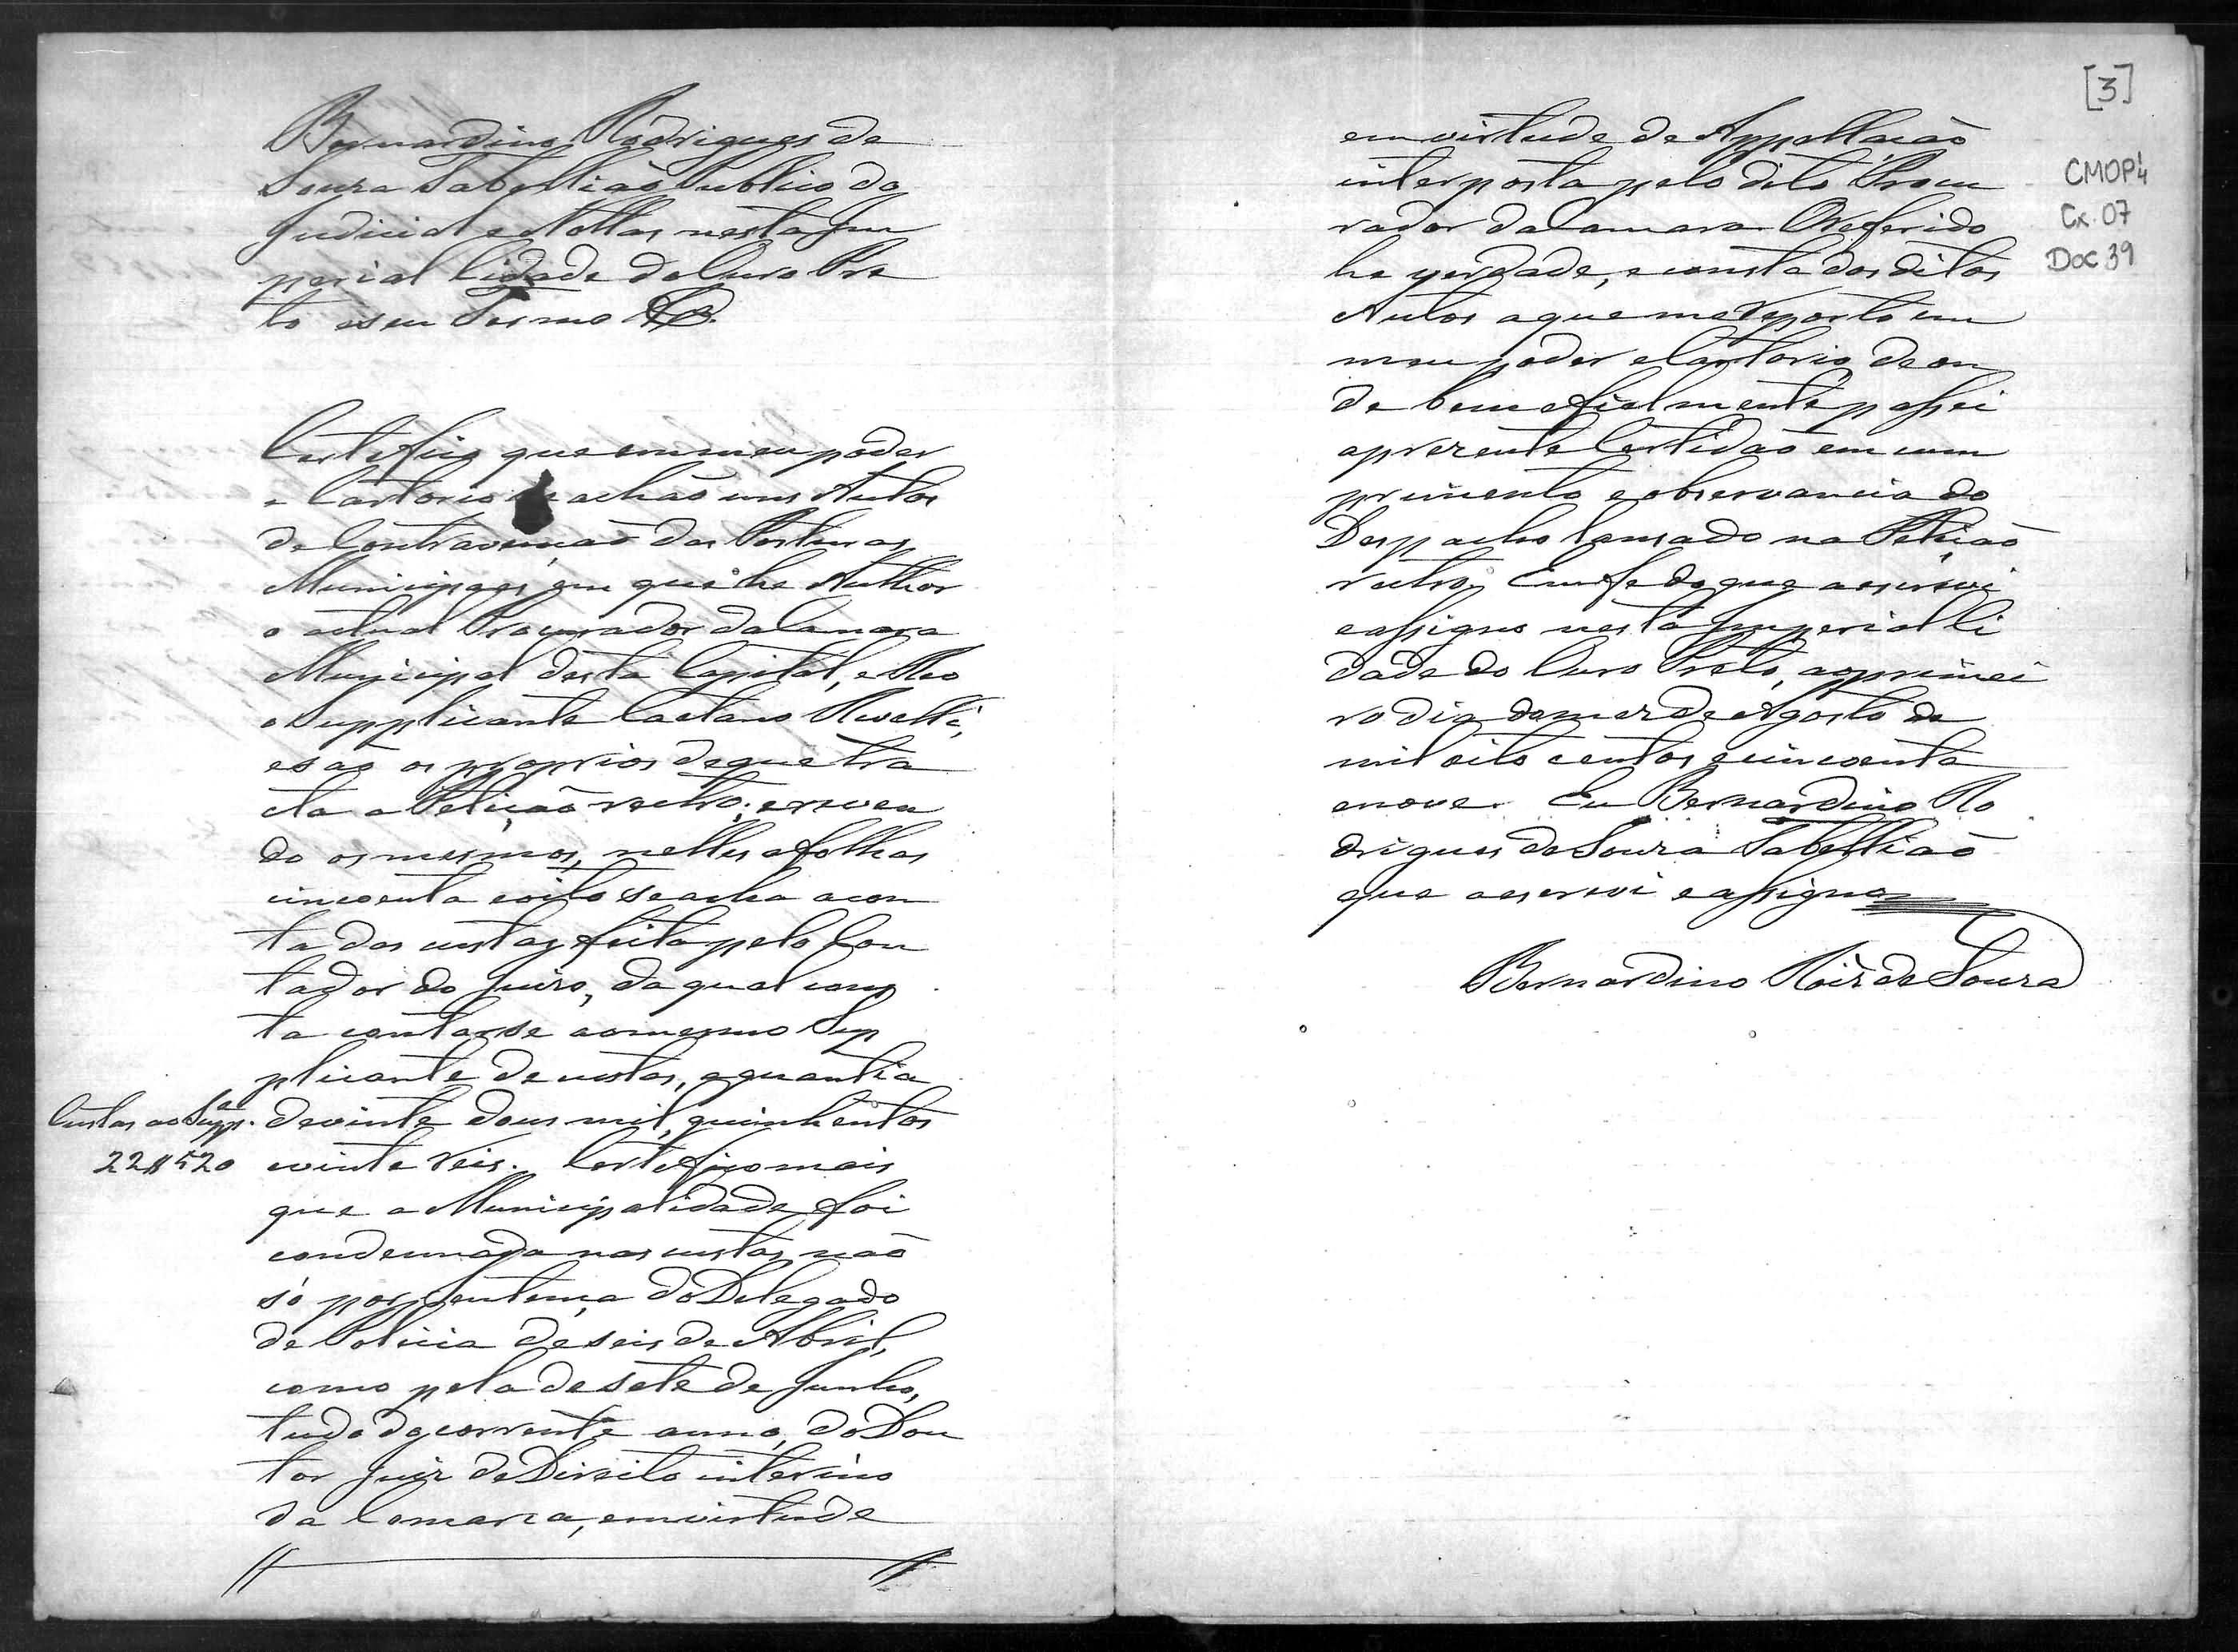 Bernardino Rodrigues de
Souza Tabellião Publico do
Judicial e Nottas nesta Im
perial Cidade do Ouro Pre
to e seu Termo &ª.
Certefico que em meu poder
e Cartorio se achão uns Autos
de Contravenção das Posturas
Municipaes, em que he Author
o actual Procurador da Camara
Municipal desta Capital, e Reo
o Supplicante Caetano
e são os proprios de que tra
cta a Petição retro; e reven
do os mesmos, nelles a folhas
cincoenta e oito se acha a con
ta das custas feita pelo Con
tador do Juizo, da qual cons
ta contar-se ao mesmo Sup
plicante de custas, a quantia
Custas ao Supp.e de vinte dous mil, quinhentos
22$520 e vinte reis. Certefico mais
que a Municipalidade foi
condemnada nas custas, não
só por Sentença do Delegado
de Policia de seis de Abril,
como pela de sete de Junho,
tudo do corrente anno, do Dou
tor Juiz de Direito interino
da Comarca, em virtude
[3]
CMOP 4
Cx. 07
Doc 39
em virtude de Appellação
interposta pelo dito Procu
rador da Camara. O referido
he verdade, e consta dos ditos
Autos a que me reporto em
meu poder e Cartorio de on
de bem e fielmente passei
a prezente Certidão em cum
primento e observancia do
Despacho lansado na Petição
retro. Em fe do que a escrevi
e assigno nesta Imperial Ci
dade do Ouro Preto, ao primei
ro dia do mez de Agosto de
mil oito centos e cincoenta
e nove. Eu Bernardino Ro
drigues de Souza Tabellião
que a escrevi e assigno
Bernardino Roiz de Souza